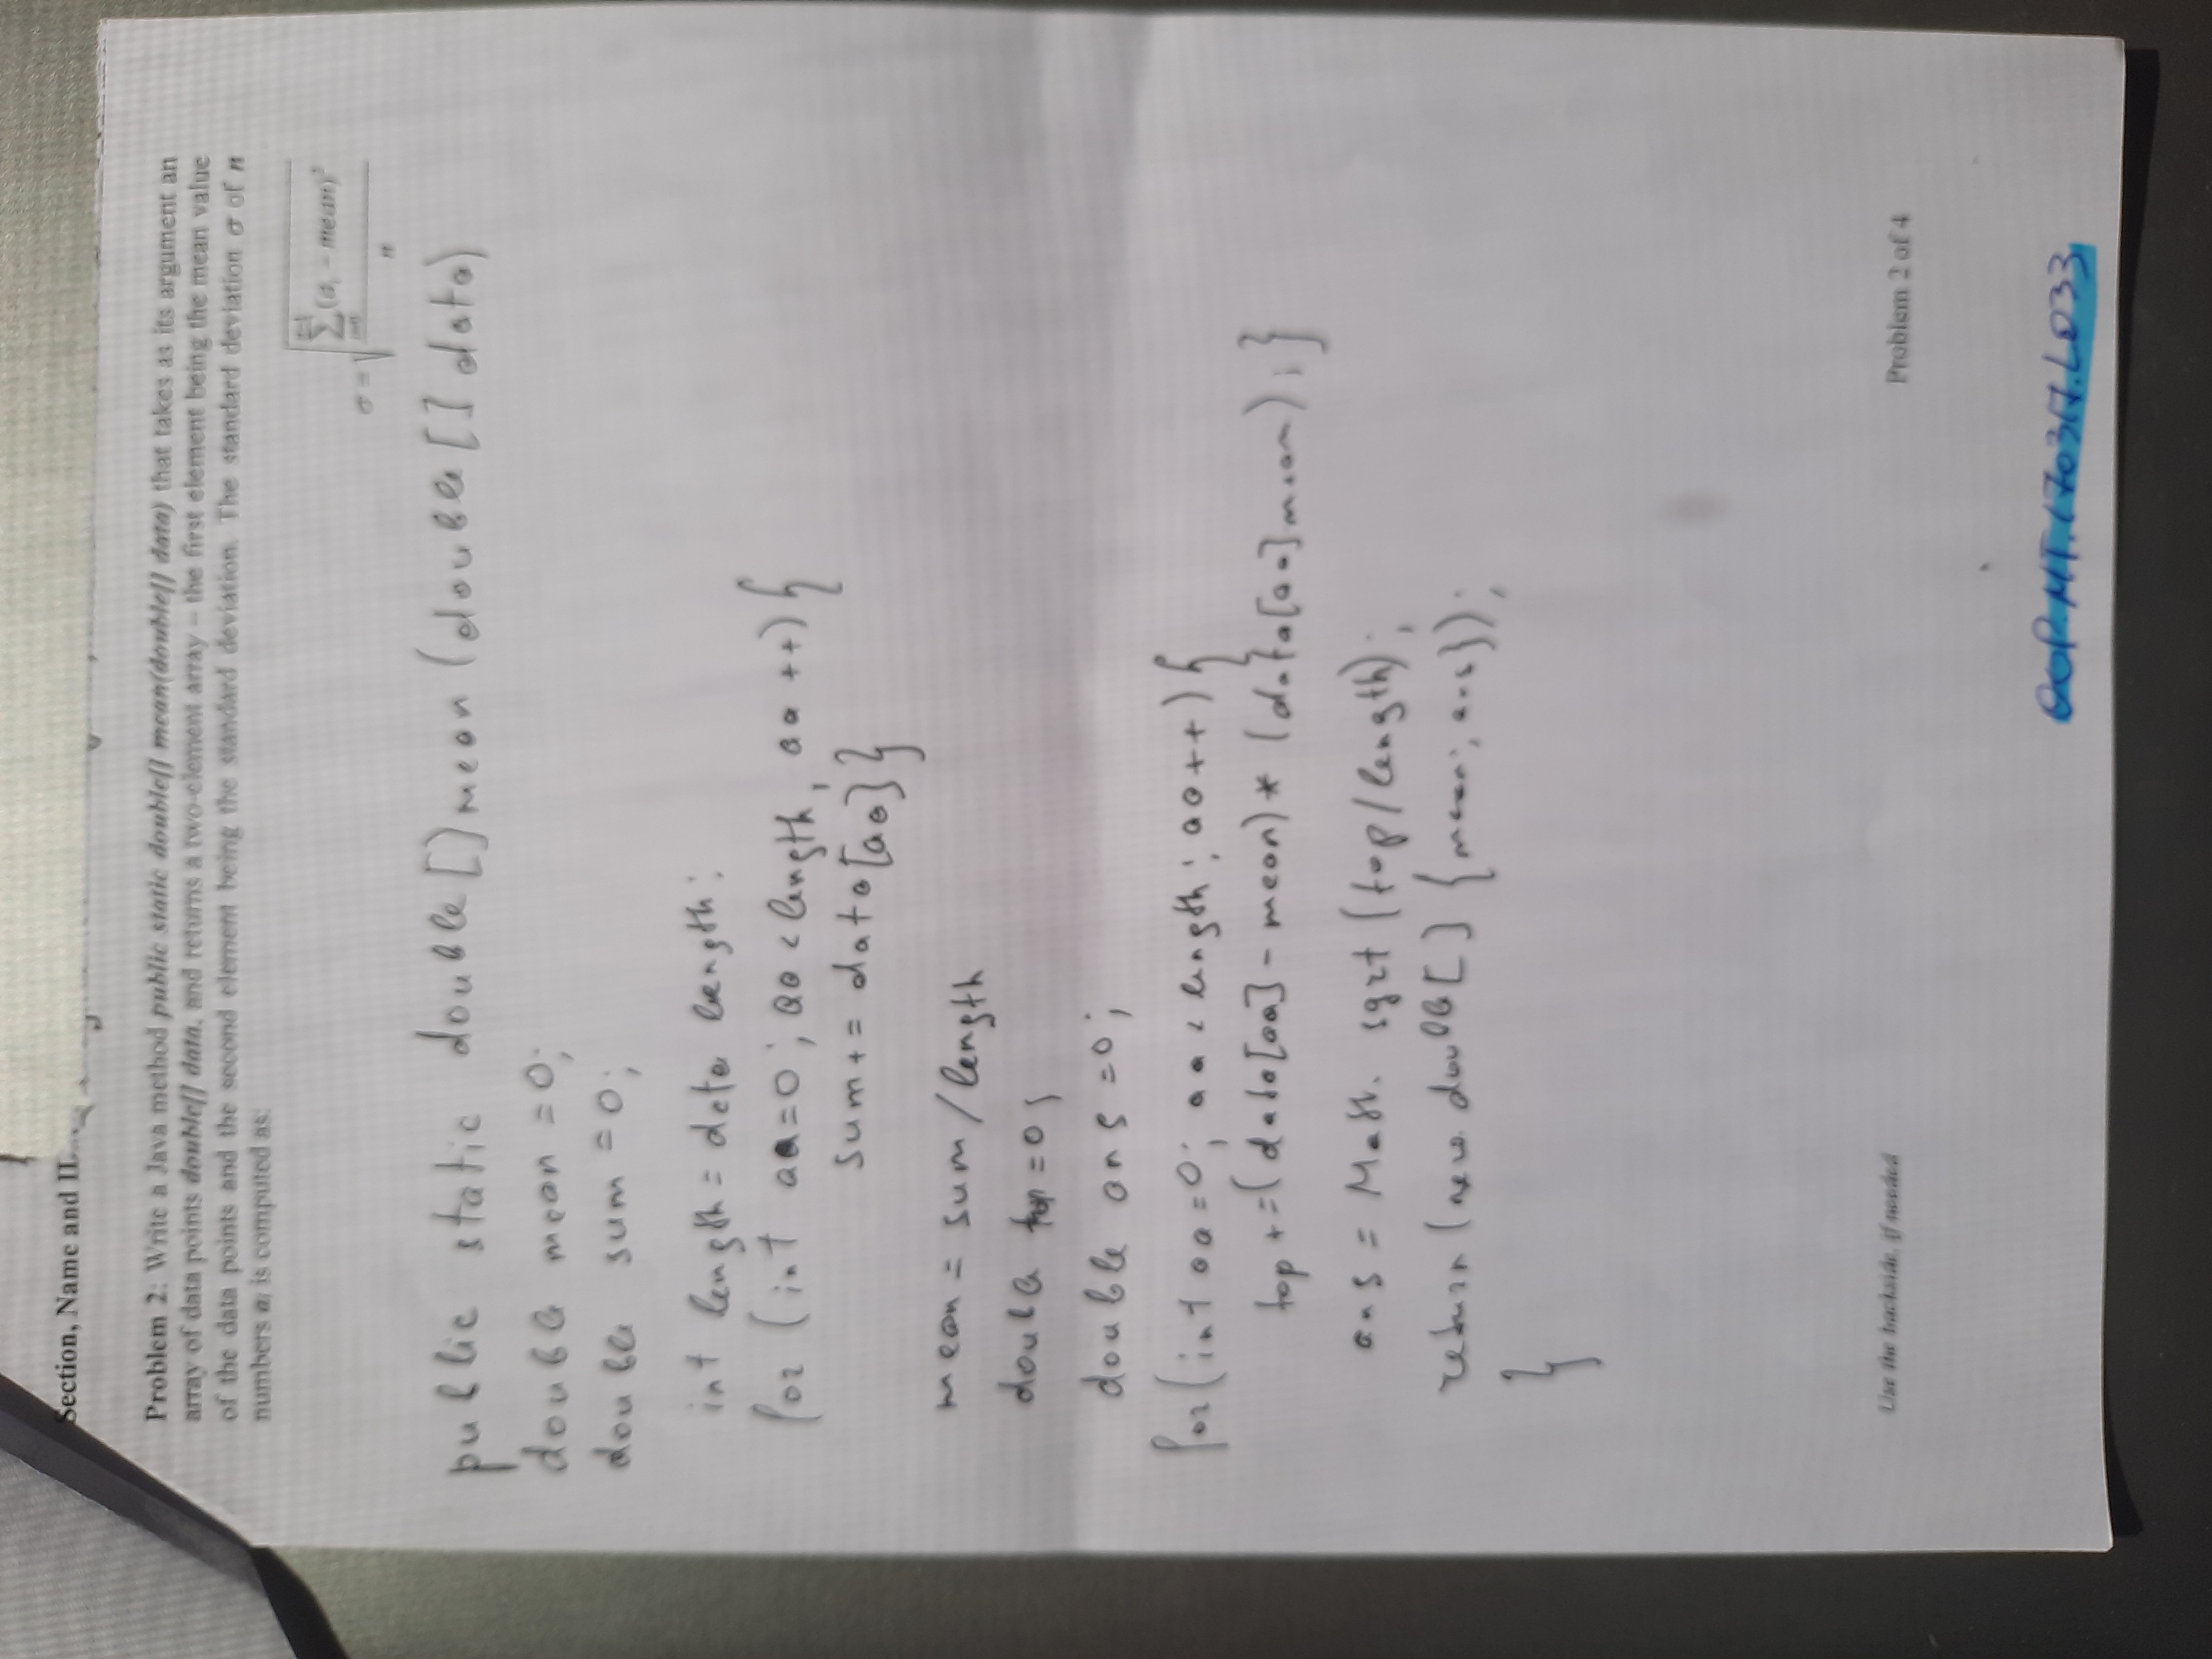 Section, Name and II
Problem 2: Write a Java method public static double[] mean(double[] data) that takes as its argument an
array of data points double[] data, and returns a two-element array – the first element being the mean value
of the data points and the second element being the standard deviation. The standard deviation σ of n
numbers aᵢ is computed as:
σ = √(∑(aᵢ - mean)² / n), i=0, n-1
public static double[] mean (double[] data)
double mean = 0;
double sum = 0;
int length = data length;
for (int aa=0; aa < length, aa ++) {
sum += data[aa]}
mean = sum / length
double top = 0;
double ans = 0;
for (int aa=0; aa < length; aa++) {
top += (data[aa] - mean) * (data[aa] mean);}
ans = Math. sqrt (top/length);
return (new double[] {mean; ans});
{
Use the backside, if needed
Problem 2 of 4
OOP.MT.170317.L033